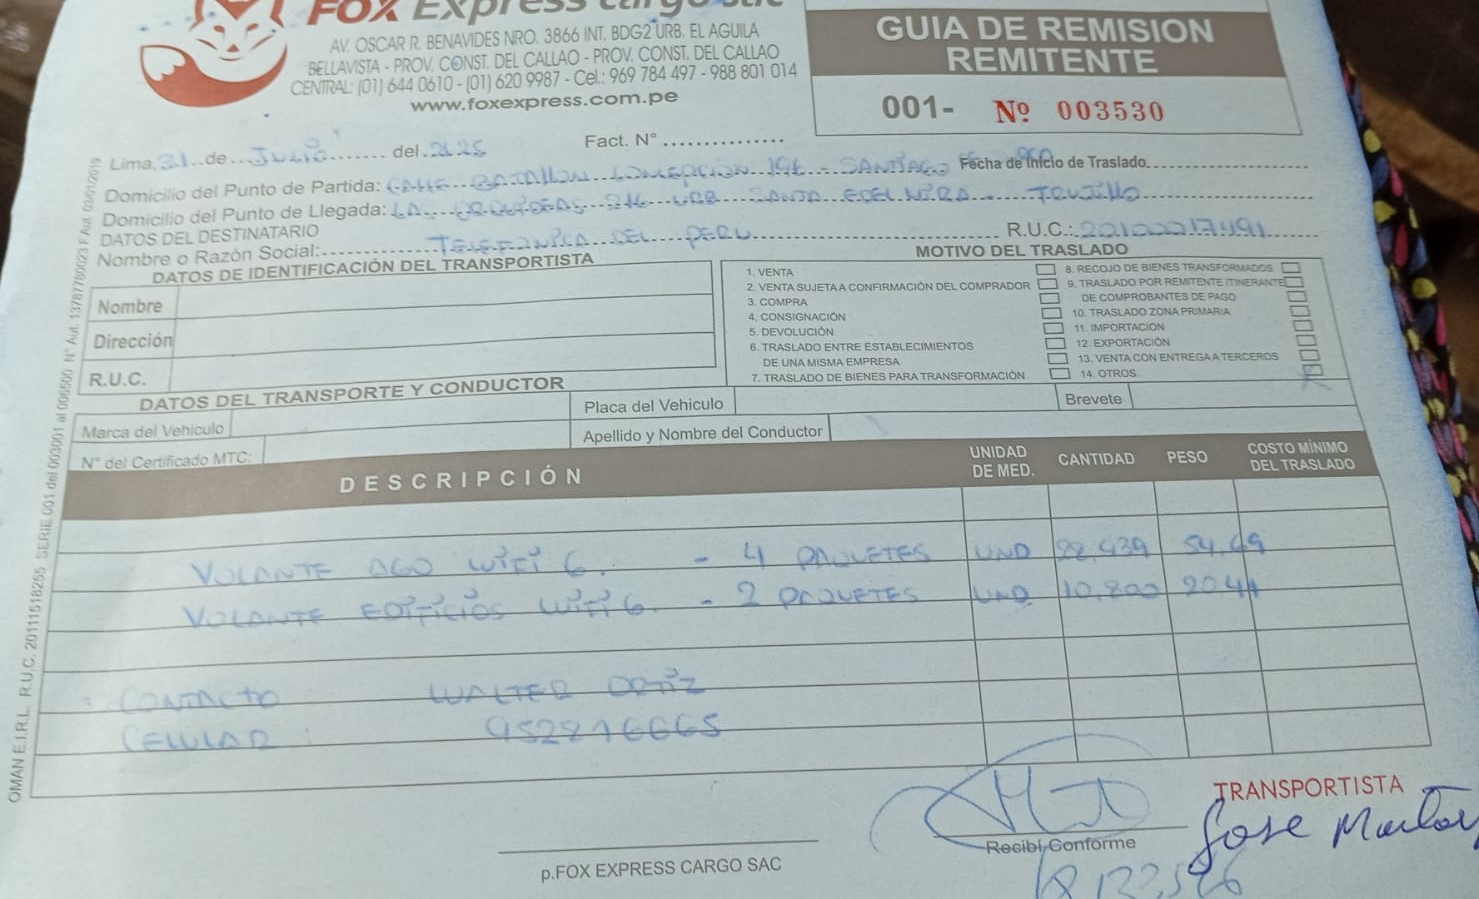 FOX Express Cargo SAC
AV. OSCAR R. BENAVIDES NRO. 3866 INT. BDG2 URB. EL AGUILA
BELLAVISTA - PROV. CONST. DEL CALLAO - PROV. CONST. DEL CALLAO
CENTRAL: (01) 644 0610 - (01) 620 9987 - Cel.: 969 784 497 - 988 801 014
www.foxexpress.com.pe
GUIA DE REMISION
REMITENTE
001- Nº 003530
Lima, 31 de JULIO del 2025 Fact. N°
Domicilio del Punto de Partida: CALLE BATALLON CONCEPCION 196 - SANTIAGO Fecha de Inicio de Traslado
Domicilio del Punto de Llegada: LAS ORQUIDEAS 216 URB SANTA EDELMIRA - TRUJILLO
DATOS DEL DESTINATARIO
Nombre o Razón Social: TELEFONICA DEL PERU R.U.C.: 20100017491
DATOS DE IDENTIFICACIÓN DEL TRANSPORTISTA
Nombre
Dirección
R.U.C.
MOTIVO DEL TRASLADO
1. VENTA
2. VENTA SUJETA A CONFIRMACIÓN DEL COMPRADOR
3. COMPRA
4. CONSIGNACIÓN
5. DEVOLUCIÓN
6. TRASLADO ENTRE ESTABLECIMIENTOS
DE UNA MISMA EMPRESA
7. TRASLADO DE BIENES PARA TRANSFORMACIÓN
8. RECOJO DE BIENES TRANSFORMADOS
9. TRASLADO POR REMITENTE ITINERANTE
DE COMPROBANTES DE PAGO
10. TRASLADO ZONA PRIMARIA
11. IMPORTACION
12. EXPORTACIÓN
13. VENTA CON ENTREGA A TERCEROS
14. OTROS X
DATOS DEL TRANSPORTE Y CONDUCTOR
Marca del Vehiculo
N° del Certificado MTC:
Placa del Vehiculo
Brevete
Apellido y Nombre del Conductor
DESCRIPCIÓN UNIDAD DE MED. CANTIDAD PESO COSTO MÍNIMO DEL TRASLADO
VOLANTE AGO WIFI 6. - 4 PAQUETES UND 22,439 54.49
VOLANTE EDIFICIOS WIFI 6. - 2 PAQUETES UND 10,800 20.44
CONTACTO WALTER ORTIZ
CELULAR : 952816665
p.FOX EXPRESS CARGO SAC
Recibí Conforme
TRANSPORTISTA
Jose
OMAN E.I.R.L. R.U.C. 20111518255 SERIE 001 del 003001 al 006500 N° Aut. 13787780023 F. Aut. 03/01/2019